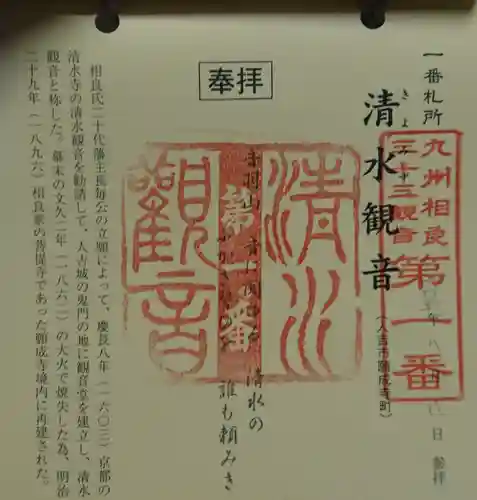 一番札所
清水観音
きよみず
(人吉市願成寺町)
九州相良
三十三観音
第一番
年 八月 日 参拝
奉拝
清水
觀音
音羽山
清水の
誰も頼みき
相良氏二十代藩主長毎公の立願によって、慶長八年(一六〇三)京都の
清水寺の清水観音を勧請して、人吉城の鬼門の地に観音堂を建立し、清水
観音と称した。幕末の文久二年(一八六二)の大火で焼失した為、明治
二十九年(一八九六)相良家の菩提寺であった願成寺境内に再建された。